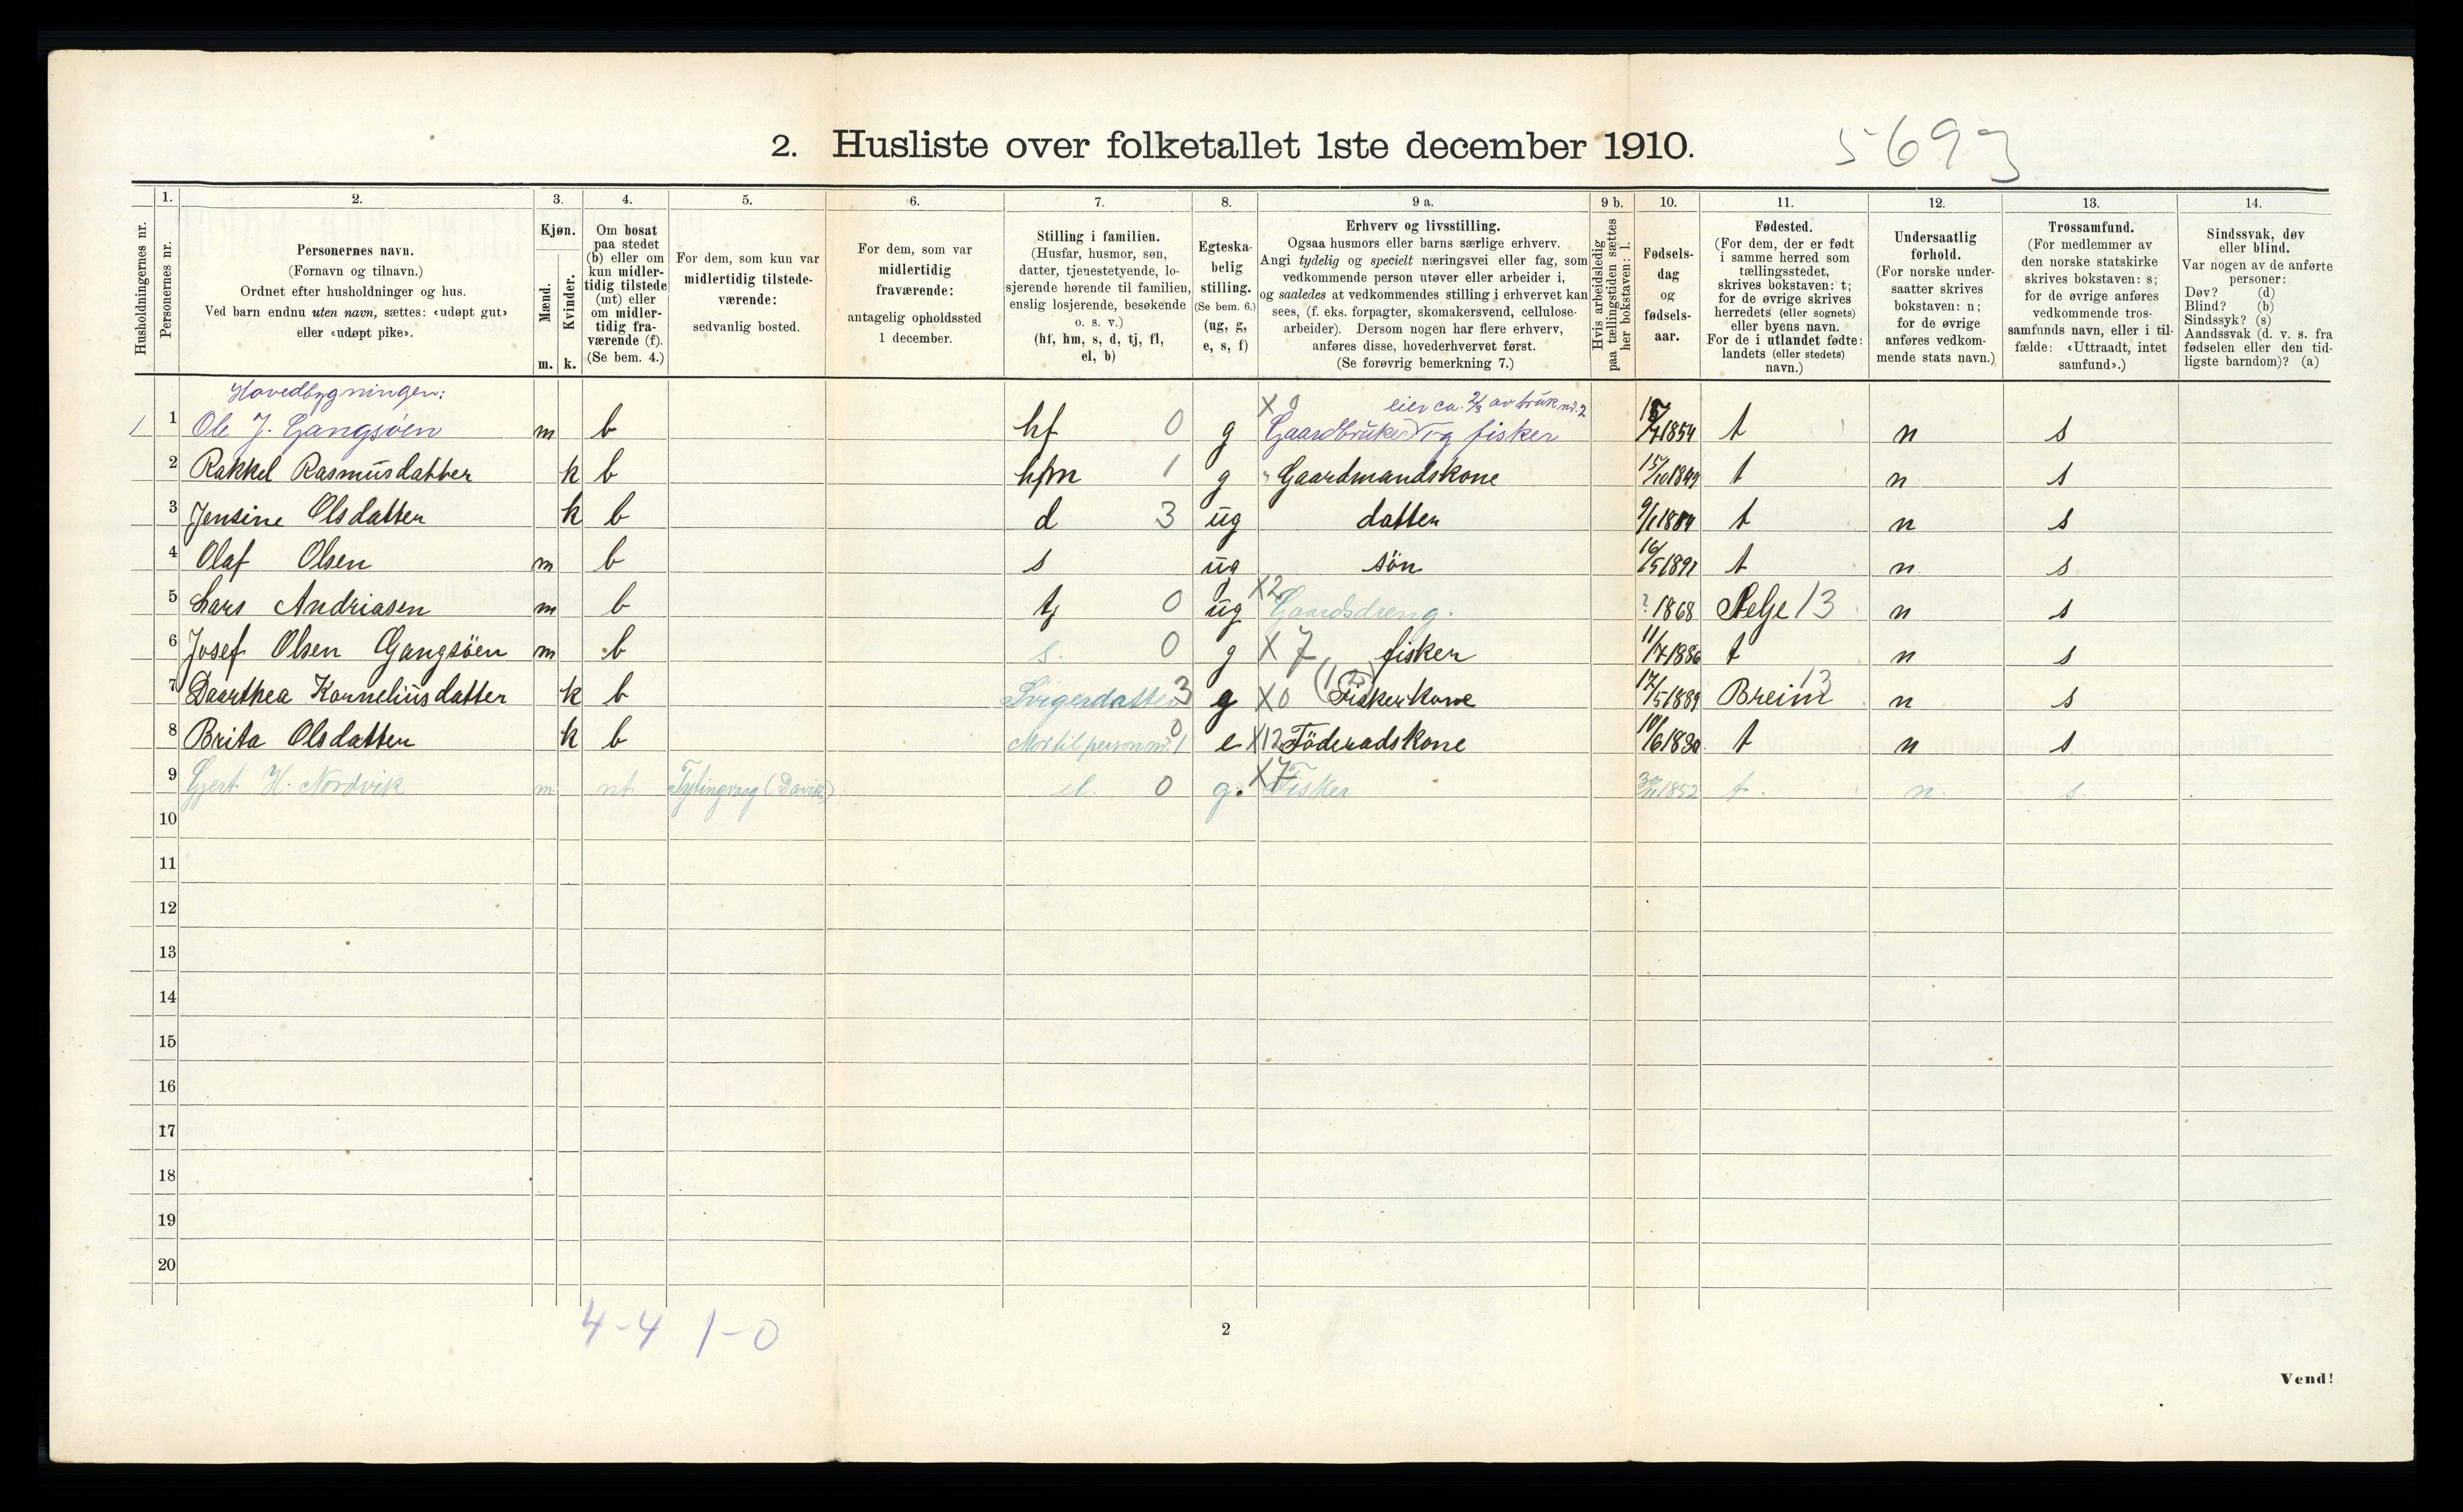 2. Husliste over folketallet 1ste december 1910.
5693
Husholdningernes nr.
1.
Personernes nr.
2.
Personernes navn.
(Fornavn og tilnavn.)
Ordnet efter husholdninger og hus.
Ved barn endnu uten navn, sættes: «udøpt gut»
eller «udøpt pike».
3.
Kjøn.
Mænd.
Kvinder.
m. k.
4.
Om bosat
paa stedet
(b) eller om
kun midler-
tidig tilstede
(mt) eller
om midler-
tidig fra-
værende (f).
(Se bem. 4.)
5.
For dem, som kun var
midlertidig tilstede-
værende:
sedvanlig bosted.
6.
For dem, som var
midlertidig
fraværende:
antagelig opholdssted
1 december.
7.
Stilling i familien.
(Husfar, husmor, søn,
datter, tjenestetyende, lo-
sjerende hørende til familien,
enslig losjerende, besøkende
o. s. v.)
(hf, hm, s, d, tj, fl,
el, b)
8.
Egteska-
belig
stilling.
(Se bem. 6.)
(ug, g,
e, s, f)
9 a.
Erhverv og livsstilling.
Ogsaa husmors eller barns særlige erhverv.
Angi tydelig og specielt næringsvei eller fag, som
vedkommende person utøver eller arbeider i,
og saaledes at vedkommendes stilling i erhvervet kan
sees, (f. eks. forpagter, skomakersvend, cellulose-
arbeider). Dersom nogen har flere erhverv,
anføres disse, hovederhvervet først.
(Se forøvrig bemerkning 7.)
9 b.
Hvis arbeidsledig
paa tællingstiden sættes
her bokstaven: l.
10.
Fødsels-
dag
og
fødsels-
aar.
11.
Fødested.
(For dem, der er født
i samme herred som
tællingsstedet,
skrives bokstaven: t;
for de øvrige skrives
herredets (eller sognets)
eller byens navn.
For de i utlandet fødte:
landets (eller stedets)
navn.)
12.
Undersaatlig
forhold.
(For norske under-
saatter skrives
bokstaven: n;
for de øvrige
anføres vedkom-
mende stats navn.)
13.
Trossamfund.
(For medlemmer av
den norske statskirke
skrives bokstaven: s;
for de øvrige anføres
vedkommende tros-
samfunds navn, eller i til-
fælde: «Uttraadt, intet
samfund».)
14.
Sindssvak, døv
eller blind.
Var nogen av de anførte
personer:
Døv? (d)
Blind? (b)
Sindssyk? (s)
Aandssvak (d. v. s. fra
fødselen eller den tid-
ligste barndom)? (a)
Hovedbygningen:
X 0 eier ca. 2/3 av bruk nr. 2
1 1 Ole J. Gangsöen m b hf 0 g Gaardbruker og fisker /7 1854 t n s
2 Rakkel Rasmusdatter k b hm 1 g Gaardmandskone 15/10 1849 t n s
3 Jensine Olsdatter k b d 3 ug datter 9/1 1884 t n s
4 Olaf Olsen m b s ug sön 16/5 1891 t n s
5 Lars Andriasen m b tj 0 ug X2 Gaardsdreng. ? 1868 Selje 13 n s
6 Josef Olsen Gangsöen m b s. 0 g X 7 fisker 11/7 1886 t n s
7 Daarthea Korneliusdatter k b Svigerdatter 3 g X0 Fiskerkone 17/5 1889 Breim 13 n s
8 Brita Olsdatter k b Mor til person nr. 1 0 e X12 Föderadskone 10/6 1830 t n s
9 Gjert H. Nordvik m mt Tytingvaag (Davik) el. 0 g. X7 Fisker 30/11 1852 t. n. s.
10
11
12
13
14
15
16
17
18
19
20
4-4 1-0
2
Vend!